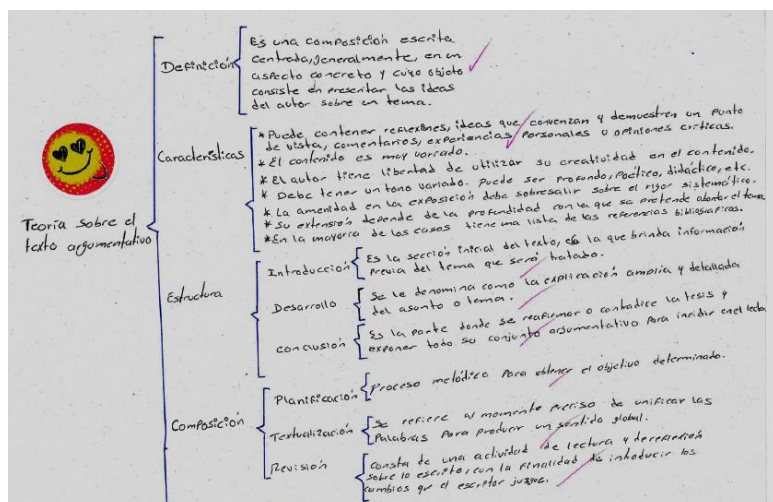 Teoría sobre el
texto argumentativo
Definición
Es una composición escrita
centrada, generalmente, en un
aspecto concreto y cuyo objeto
consiste en presentar las ideas
del autor sobre un tema.
Características
* Puede contener reflexiones, ideas que convenzan y demuestren un punto
de vista, comentarios, experiencias personales u opiniones críticas.
* El contenido es muy variado.
* El autor tiene libertad de utilizar su creatividad en el contenido.
* Debe tener un tono variado. Puede ser profundo, poético, didáctico, etc.
* La amenidad en la exposición debe sobresalir sobre el rigor sistemático.
* Su extensión depende de la profundidad con la que se pretende abordar el tema.
* En la mayoría de los casos tiene una lista de las referencias bibliograficas.
Estructura
Introducción
Es la sección inicial del texto, es la que brinda información
previa del tema que será tratado.
Desarrollo
Se le denomina como la explicación amplia y detallada
del asunto o tema.
conclusión
Es la parte donde se reafirmar o contradice la tesis y
exponer todo su conjunto argumentativo para incidir en el lector
Composición
Planificación
Proceso metódico para obtener el objetivo determinado.
Textualización
Se refiere al momento preciso de unificar las
palabras para producir un sentido global.
Revisión
Consta de una actividad de lectura y de reflexión
sobre lo escrito, con la finalidad de introducir los
cambios que el escritor juzgue.